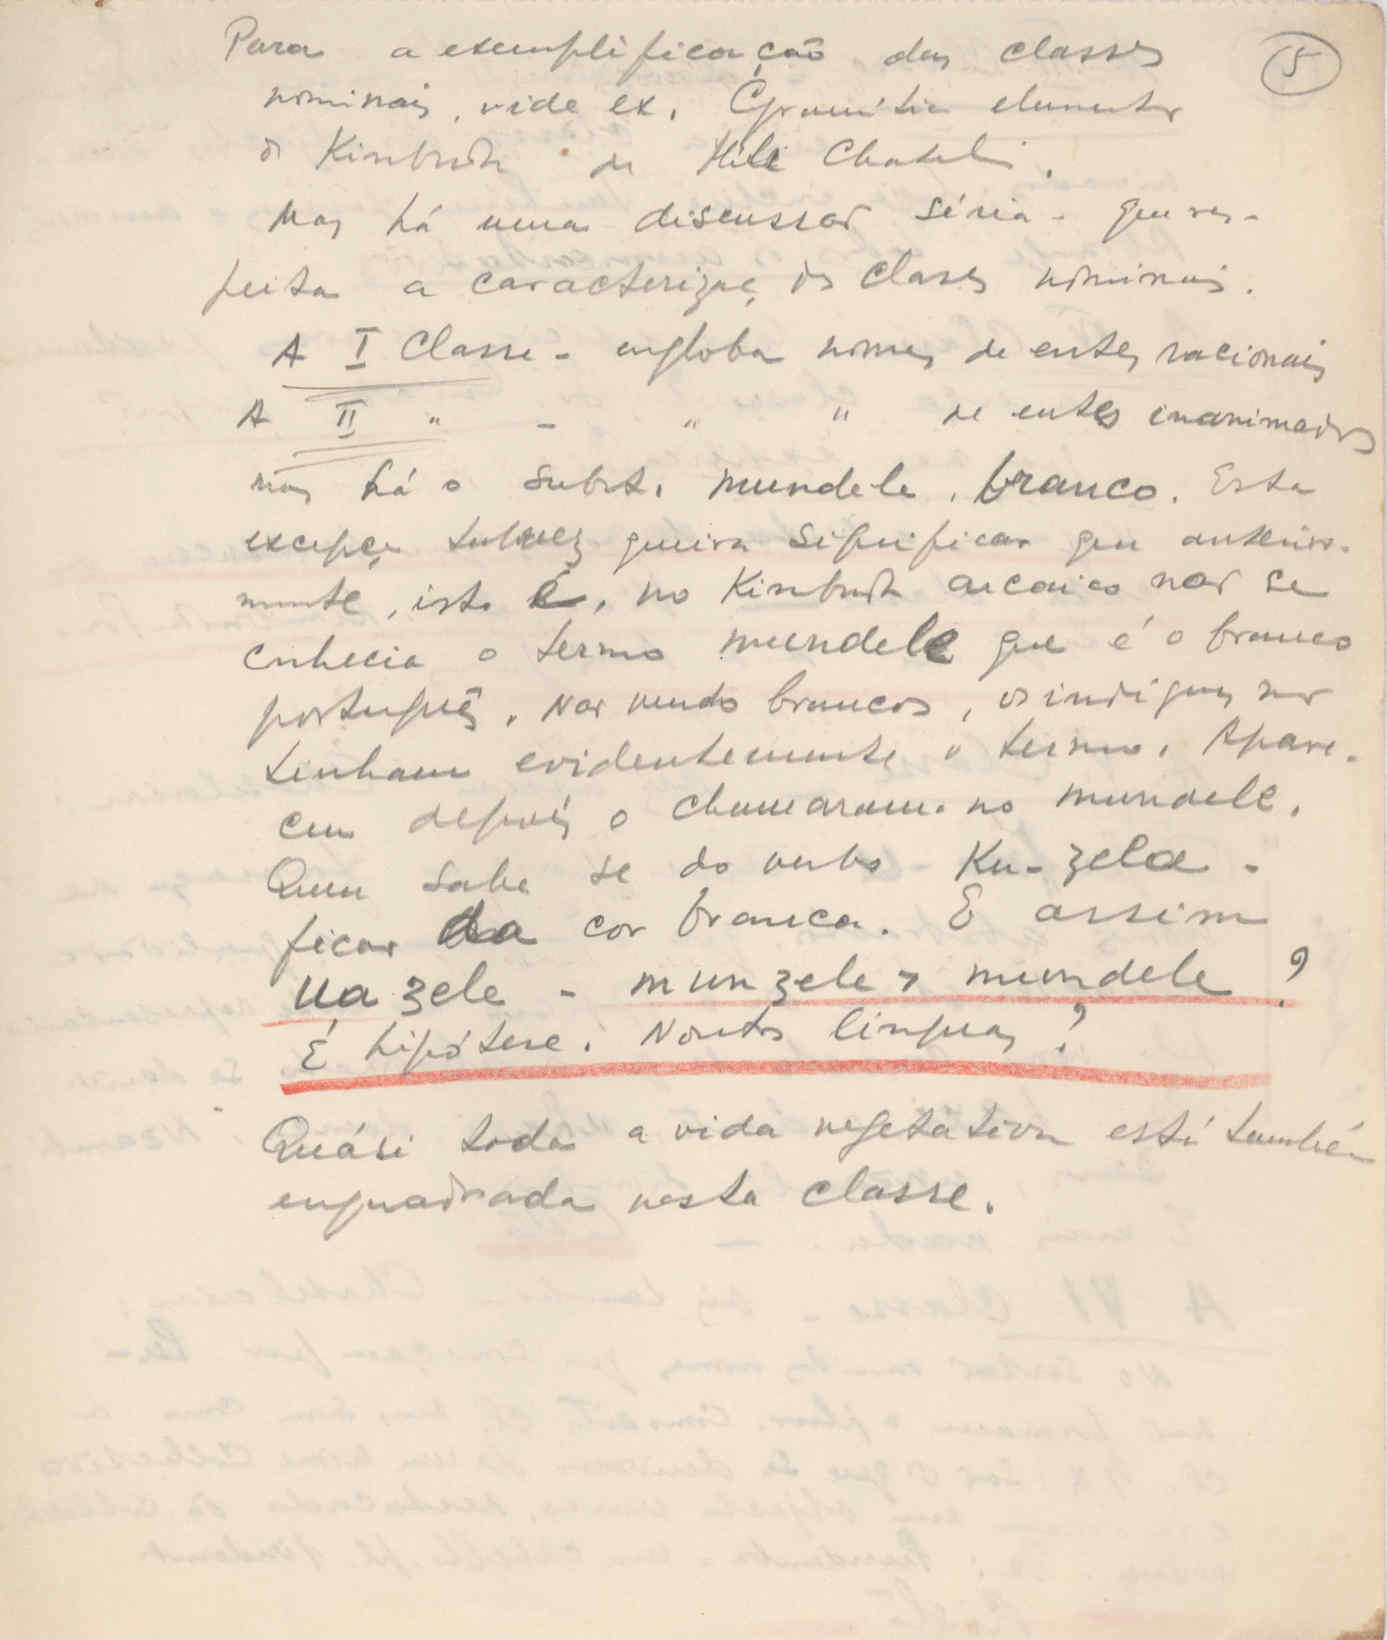 5
Para a exemplificação das classes
nominais, vide ex. Gramática elementar
do Kimbundu de Héli Chatelain.
Mas há uma discussão séria - que res-
peita a caracterizaç. das classes nominais.
A I Classe - engloba nomes de entes racionais
A II " - " " de entes inanimados
mas há o subst. mundele, branco. Esta
excepção talvez queira significar que anterior-
mente, isto é, no Kimbundu arcaico não se
conhecia o termo mundele que é o branco
português. Não vendo brancos, os indígenas não
tinham evidentemente o termo. Apare-
cem depois o chamaram-no mundele.
Quem sabe se do verbo Ku-zela -
ficar da cor branca. E assim
Ua zele - munzele > mundele ?
É hipótese. Noutras línguas ?
Quási toda a vida vegetativa está também
enquadrada nesta classe.